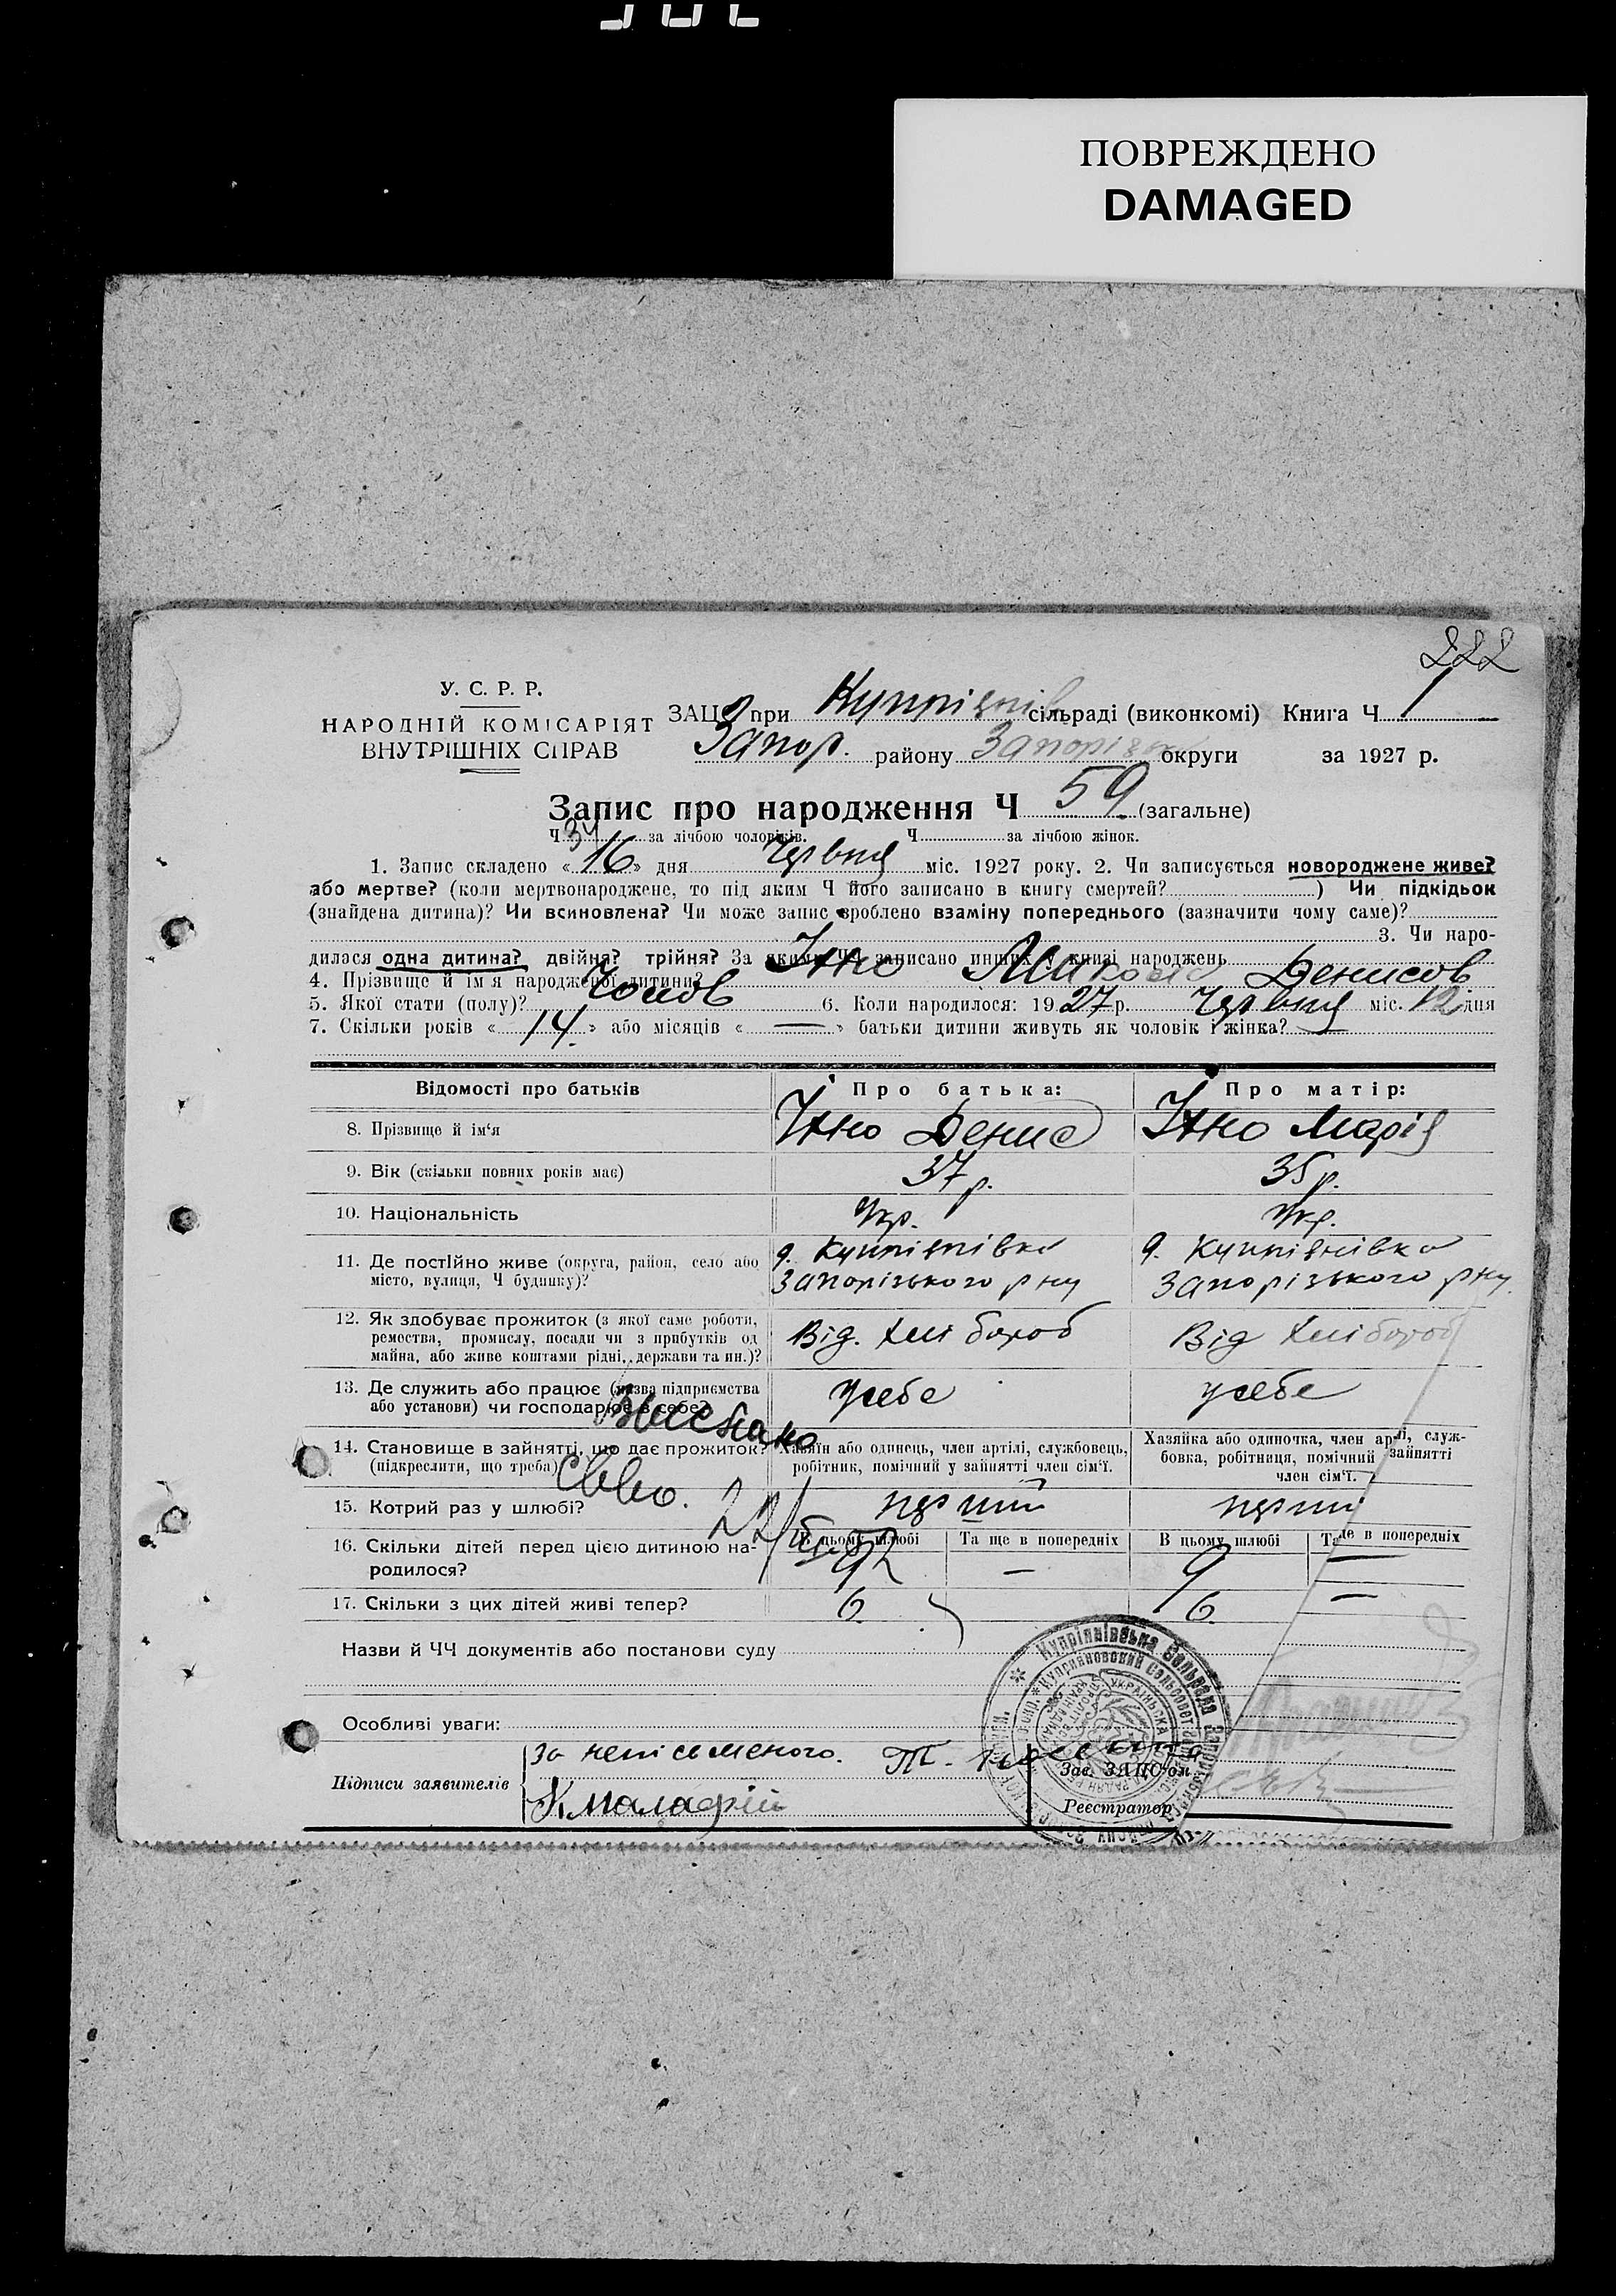 ПОВРЕЖДЕНО
DAMAGED
222
У. С. Р. Р.
НАРОДНІЙ КОМІСАРІЯТ
ВНУТРІШНІХ СПРАВ
ЗАЦС при Купріянів сільраді (виконкомі) Книга Ч 1
Запор. району Запорізьк округи за 1927 р.
Запис про народження Ч 59 (загальне)
Ч 34 за лічбою чоловіків. Ч за лічбою жінок.
1. Запис складено «16» дня Червня міс. 1927 року. 2. Чи записується новороджене живе?
або мертве? (коли мертвонароджене, то під яким Ч його записано в книгу смертей? ) Чи підкідьок
(знайдена дитина)? Чи всиновлена? Чи може запис зроблено взаміну попереднього (зазначити чому саме)?
3. Чи наро-
дилася одна дитина? двійня? трійня? За яким ЧЧ записано инших у книзі народжень
4. Прізвище й ім'я народженої дитини? Їхно Микола Денисов
5. Якої стати (полу)? Чолов 6. Коли народилося: 1927 р. Червня міс. 12 дня
7. Скільки років «14» або місяців «—» батьки дитини живуть як чоловік і жінка?
Відомості про батьків Про батька: Про матір:
8. Прізвище й ім'я Їхно Денис Їхно Марія
9. Вік (скільки повних років має) 37 р. 35 р.
10. Національність Укр. Укр.
11. Де постійно живе (округа, район, село або місто, вулиця, Ч будинку)? д. Купріянівка д. Купріянівка
Запорізького рну Запорізького рну
12. Як здобуває прожиток (з якої саме роботи,
ремества, промислу, посади чи з прибутків од
майна, або живе коштами рідні, держави та ин.)? Від. хлібороб Від хлібороб
13. Де служить або працює (назва підприємства
або установи) чи господарює в себе? усебе усебе
Выслано
14. Становище в зайнятті, що дає прожиток?
(підкреслити, що треба)
Хазяїн або одинець, член артілі, службовець,
робітник, помічний у зайнятті член сім'ї.
Хазяйка або одиночка, член артілі, служ-
бовка, робітниця, помічний зайнятті
член сім'ї.
15. Котрий раз у шлюбі? перший перший
В цьому шлюбі Та ще в попередніх В цьому шлюбі Та ще в попередніх
16. Скільки дітей перед цією дитиною на-
родилося? 9 — 9 —
17. Скільки з цих дітей живі тепер? 6 6 —
Назви й ЧЧ документів або постанови суду
Особливі уваги:
Підписи заявителів
за неписьменого.
Зав. ЗАЦС'ом
Реєстратор